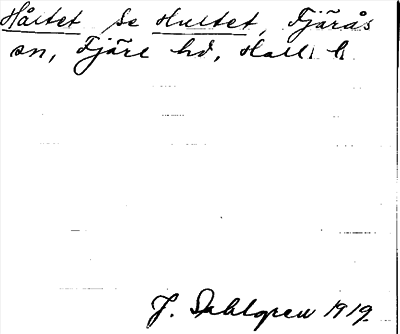 Håltet Se Hultet, Fjärås
sn, Fjäre hd, Hall. l.
J. Sahlgren 1919.